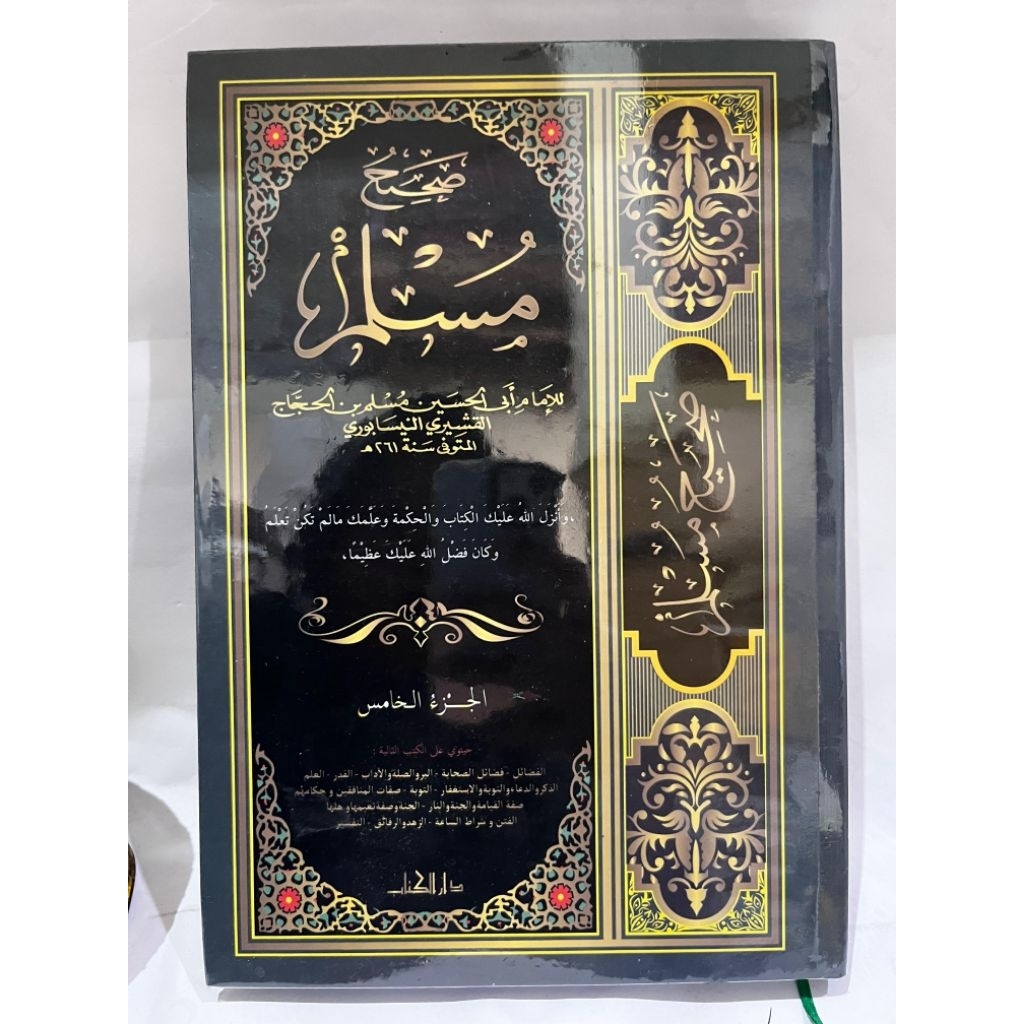 صَحِيحُ
مُسْلِم
للإمَام أَبي الحسَين مُسْلم بن الحجَّاج
القشيري النيسابوري
المتوفى سَنة ٢٦١ هـ
،وَأَنْزَلَ اللهُ عَلَيْكَ الْكِتَابَ وَالْحِكْمَةَ وَعَلَّمَكَ مَالَمْ تَكُنْ تَعْلَمُ
وَكَانَ فَضْلُ اللهِ عَلَيْكَ عَظِيْمًا،
الجـزءُ الخامس
حيتوي على الكتب التالية :
الفضائل - فضائل الصحابة - البر والصلة والآداب - القدر - العلم
الذكر والدعاء والتوبة والاستغفار - التوبة - صفات المنافقين و حكامهم
صفة القيامة والجنة والنار - الجنة وصفة نعيمها و هلها
الفتن و شراط الساعة - الزهد والرقائق - التفسير
دار الكتاب
صَحِيحُ مُسْلِم